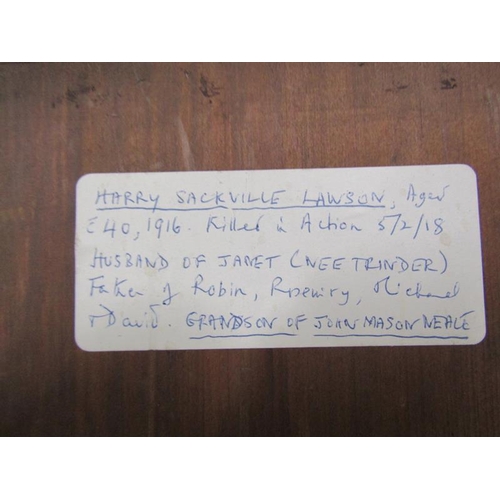 HARRY SACKVILLE LAWSON, Aged
C 40, 1916. Killed in Action 5/2/18
HUSBAND OF JANET (NEE TRINDER)
Father of Robin, Rosemary, Michael
+ David. GRANDSON OF JOHN MASON NEALE